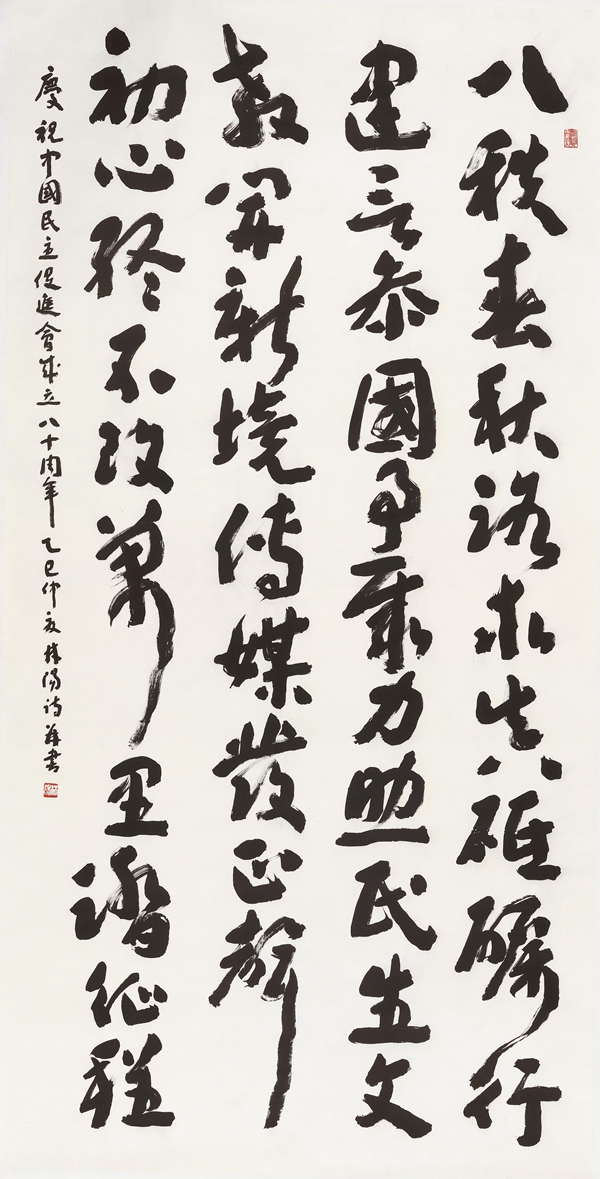 八秩春秋路求真砥礪行
建言參國事聚力助民生文
教開新境傳媒發正聲
初心終不改萬里踏征程
慶祝中國民主促進會成立八十周年乙巳仲夏林陽詩并書